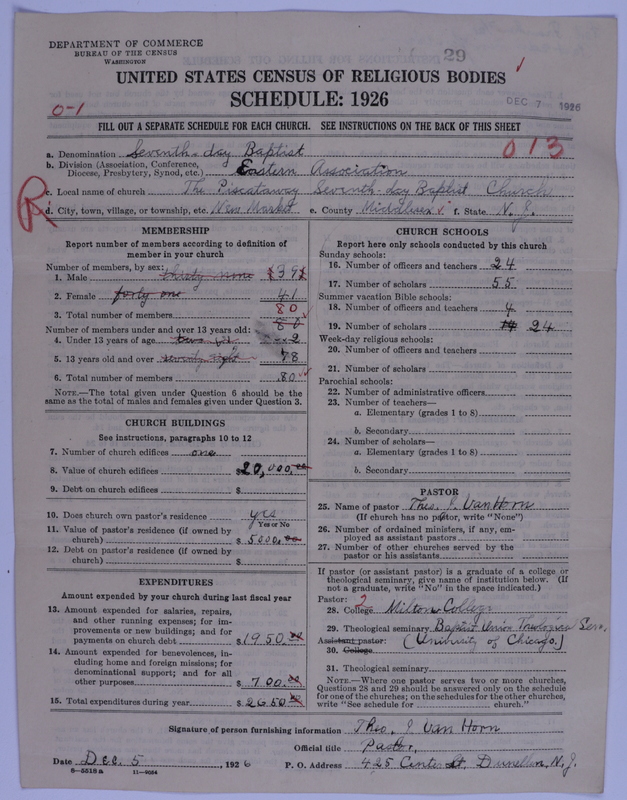 DEPARTMENT OF COMMERCE
BUREAU OF THE CENSUS
WASHINGTON
29
UNITED STATES CENSUS OF RELIGIOUS BODIES
SCHEDULE: 1926
0-1
DEC 7 1926
FILL OUT A SEPARATE SCHEDULE FOR EACH CHURCH. SEE INSTRUCTIONS ON THE BACK OF THIS SHEET
013
a. Denomination Seventh-day Baptist
b. Division (Association, Conference, Diocese, Presbytery, Synod, etc.) Eastern Association
c. Local name of church The Piscataway Seventh-day Baptist Church
d. City, town, village, or township, etc. New Market e. County Middlesex f. State N. J.
R
MEMBERSHIP
Report number of members according to definition of member in your church
Number of members, by sex:
1. Male thirty nine 39
2. Female forty one 41
3. Total number of members 80
80
Number of members under and over 13 years old:
4. Under 13 years of age two 2
5. 13 years old and over seventy eight 78
6. Total number of members 80
NOTE.—The total given under Question 6 should be the same as the total of males and females given under Question 3.
CHURCH BUILDINGS
See instructions, paragraphs 10 to 12
7. Number of church edifices one
8. Value of church edifices $20,000.00
9. Debt on church edifices $
10. Does church own pastor's residence yes
Yes or No
11. Value of pastor's residence (if owned by church) $5000.00
12. Debt on pastor's residence (if owned by church) $
EXPENDITURES
Amount expended by your church during last fiscal year
13. Amount expended for salaries, repairs, and other running expenses; for improvements or new buildings; and for payments on church debt $1950.00
14. Amount expended for benevolences, including home and foreign missions; for denominational support; and for all other purposes $700.00
15. Total expenditures during year $2650.00
CHURCH SCHOOLS
Report here only schools conducted by this church
Sunday schools:
16. Number of officers and teachers 24
17. Number of scholars 55
Summer vacation Bible schools:
18. Number of officers and teachers 4
19. Number of scholars 24
Week-day religious schools:
20. Number of officers and teachers
21. Number of scholars
Parochial schools:
22. Number of administrative officers
23. Number of teachers—
a. Elementary (grades 1 to 8)
b. Secondary
24. Number of scholars—
a. Elementary (grades 1 to 8)
b. Secondary
PASTOR
25. Name of pastor Theo. J. Van Horn
(If church has no pastor, write "None")
26. Number of ordained ministers, if any, employed as assistant pastors
27. Number of other churches served by the pastor or his assistants
If pastor (or assistant pastor) is a graduate of a college or theological seminary, give name of institution below. (If not a graduate, write "No" in the space indicated.)
Pastor: 2
28. College Milton College
29. Theological seminary Baptist Union Theological Sem.
Assistant pastor: (University of Chicago.)
30. College
31. Theological seminary
NOTE.—Where one pastor serves two or more churches, Questions 28 and 29 should be answered only on the schedule for one of the churches; on the schedules for the other churches, write "See schedule for church."
Signature of person furnishing information Theo. J. Van Horn
Official title Pastor,
Date Dec. 5, 1926 P. O. Address 425 Center St. Dunellen, N. J.
8-5518a 11-9054